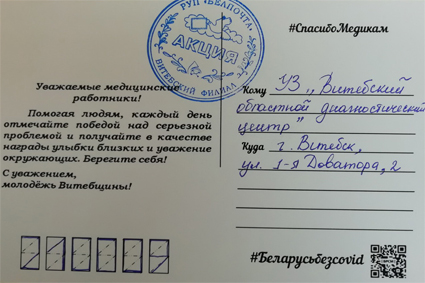 РУП «БЕЛПОЧТА»
АКЦИЯ
ВИТЕБСКИЙ ФИЛИАЛ
#СпасибоМедикам
Уважаемые медицинские
работники!
Помогая людям, каждый день
отмечайте победой над серьезной
проблемой и получайте в качестве
награды улыбки близких и уважение
окружающих. Берегите себя!
С уважением,
молодёжь Витебщины!
Кому УЗ „Витебский
областной диагностический
центр"
Куда г. Витебск,
ул. 1-я Доватора, 2
#Беларусьбезcovid